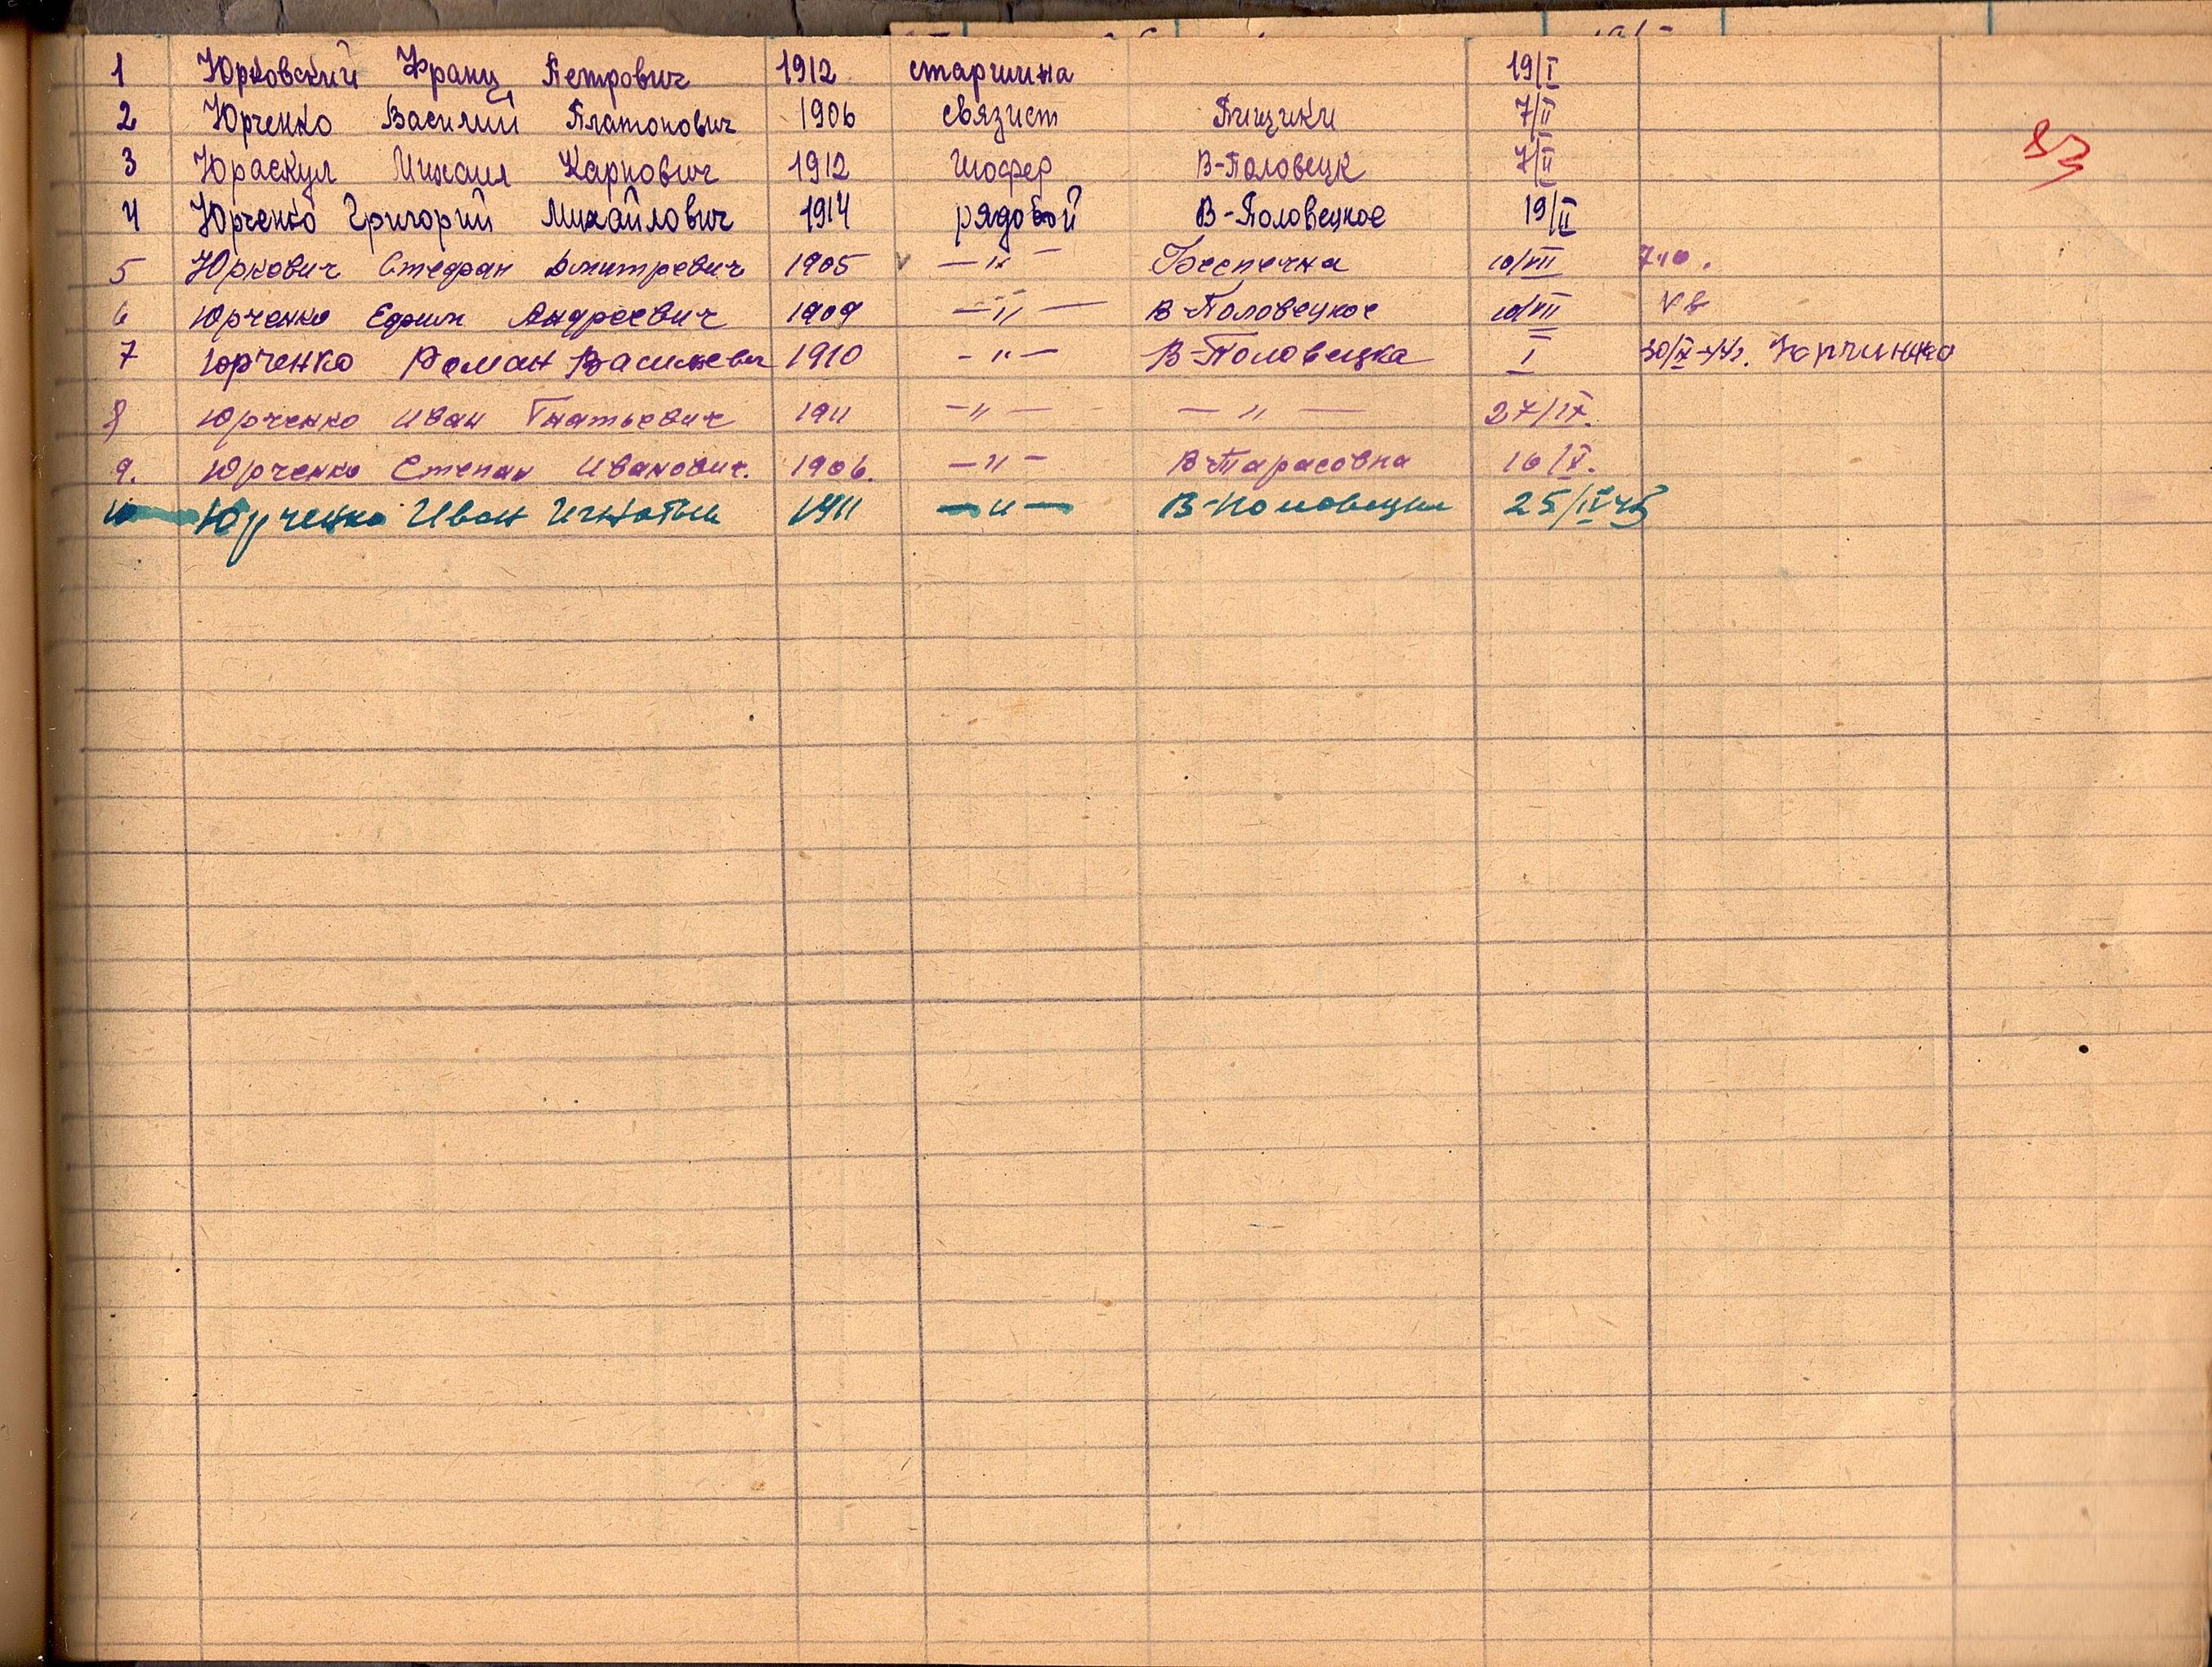 1 Юрковский Франц Петрович 1912 старшина 19/I
2 Юрченко Василий Платонович 1906 связист Пищики 7/II
83
3 Юраскул Михаил Карпович 1912 шофер В-Половецк 7/II
4 Юрченко Григорий Михайлович 1914 рядовой В-Половецкое 19/II
5 Юркович Стефан Дмитревич 1905 — " — Беспечна 10/VII
6 Юрченко Ефим Андреевич 1909 — " — В-Половецкое 10/VII
7 Юрченко Роман Василевич 1910 - " — В-Половецка I Юрчинко
8 Юрченко Иван Гнатьевич 1911 — " — — " — 27/IX.
9. Юрченко Степан Иванович. 1906. — " — В-Тарасовка 16/V.
10 Юрченко Иван 1911 — " — 25/IV 45